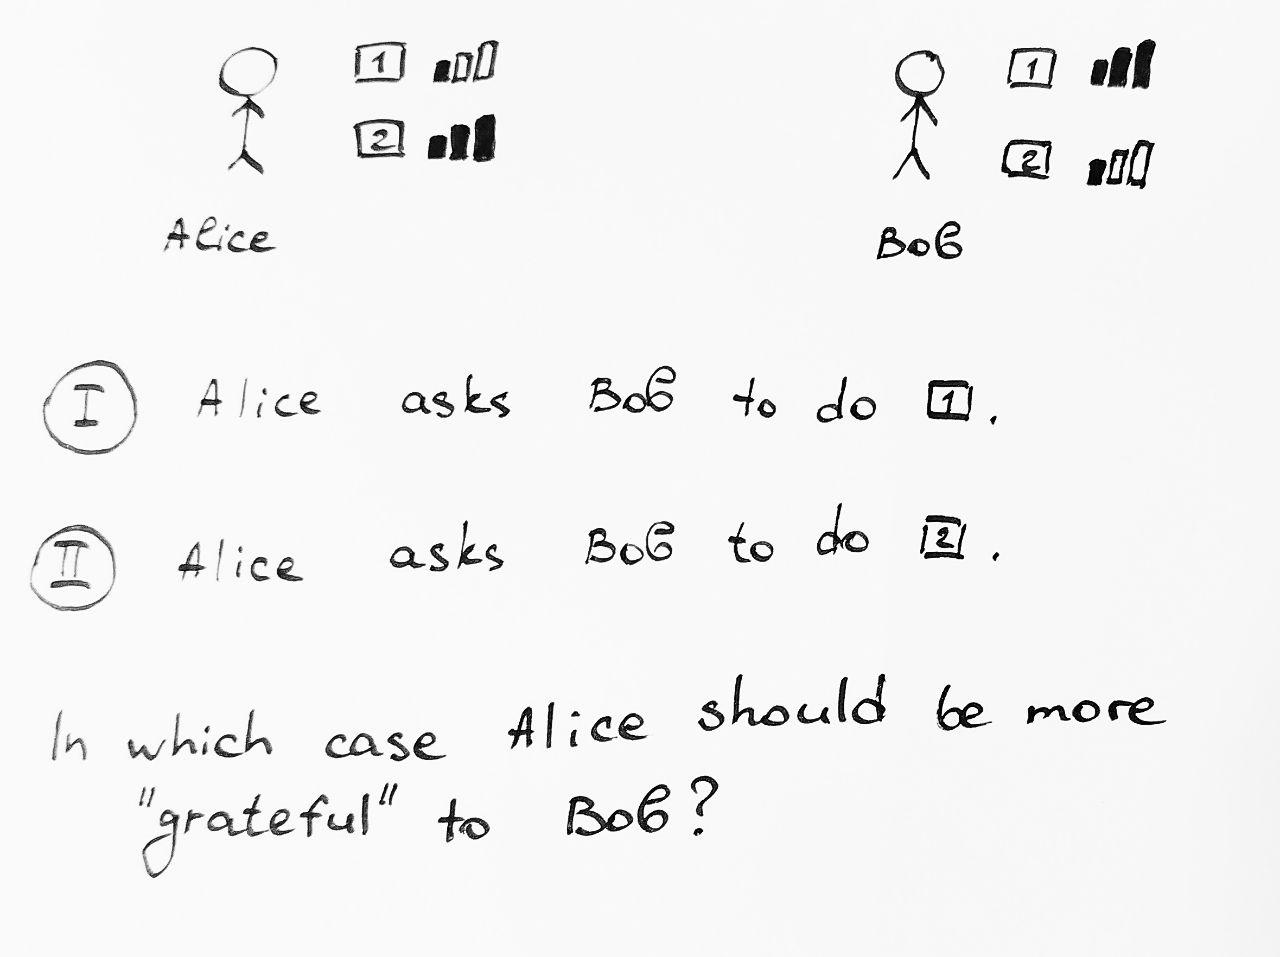 1
2
Alice
1
2
Bob
I Alice asks Bob to do 1.
II Alice asks Bob to do 2.
In which case Alice should be more
"grateful" to Bob?